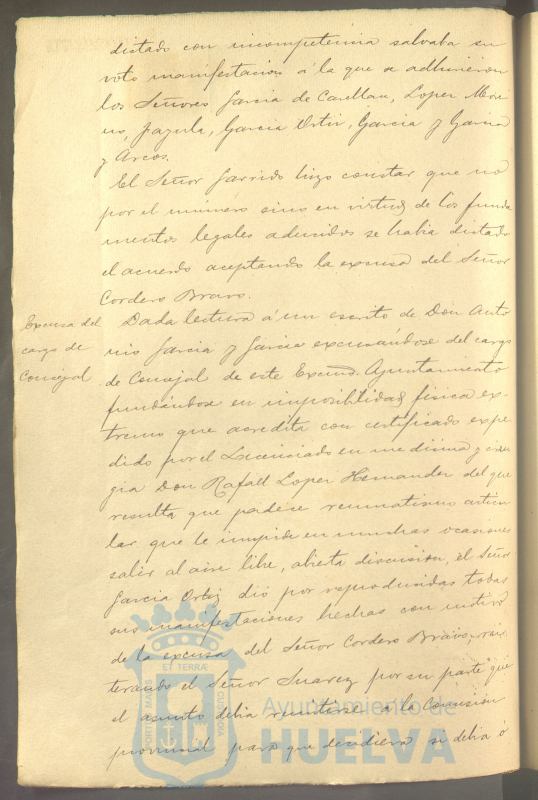 dictado con incompetencia salvaba su
voto manifestacion á la que se adhirieron
los Señores Garcia de Casellau, Lopez Mori
no, Jazula, Garcia Ortiz, Garcia y Garcia
y Arcos.
El Señor Garrido hizo constar que no
por el número sino en virtud de los funda
mentos legales aducidos se habia dictado
el acuerdo aceptando la excusa del Señor
Cordero Bravo.
Excusa del
cargo de
Concejal
Dada lectura á un escrito de Don Anto
nio Garcia y Garcia excusándose del cargo
de Concejal de este Excmo. Ayuntamiento
fundándose en imposibilidad física ex-
tremo que acredita con certificado expe
dido por el Licenciado en medicina y ciru
gia Don Rafael Lopez Hernandez del que
resulta que padece reumatismo articu
lar que le impide en muchas ocasiones
salir al aire libre, abierta discusion, el Señor
Garcia Ortiz dió por reproducidas todas
sus manifestaciones hechas con motivo
de la excusa del Señor Cordero Bravo, rei
terando el Señor Suarez por su parte que
el asunto debia remitirse a la Comision
provincial para que decidiera si debia ó
PORTUS MARIS ET TERRÆ CUSTODIA
Ayuntamiento de
HUELVA